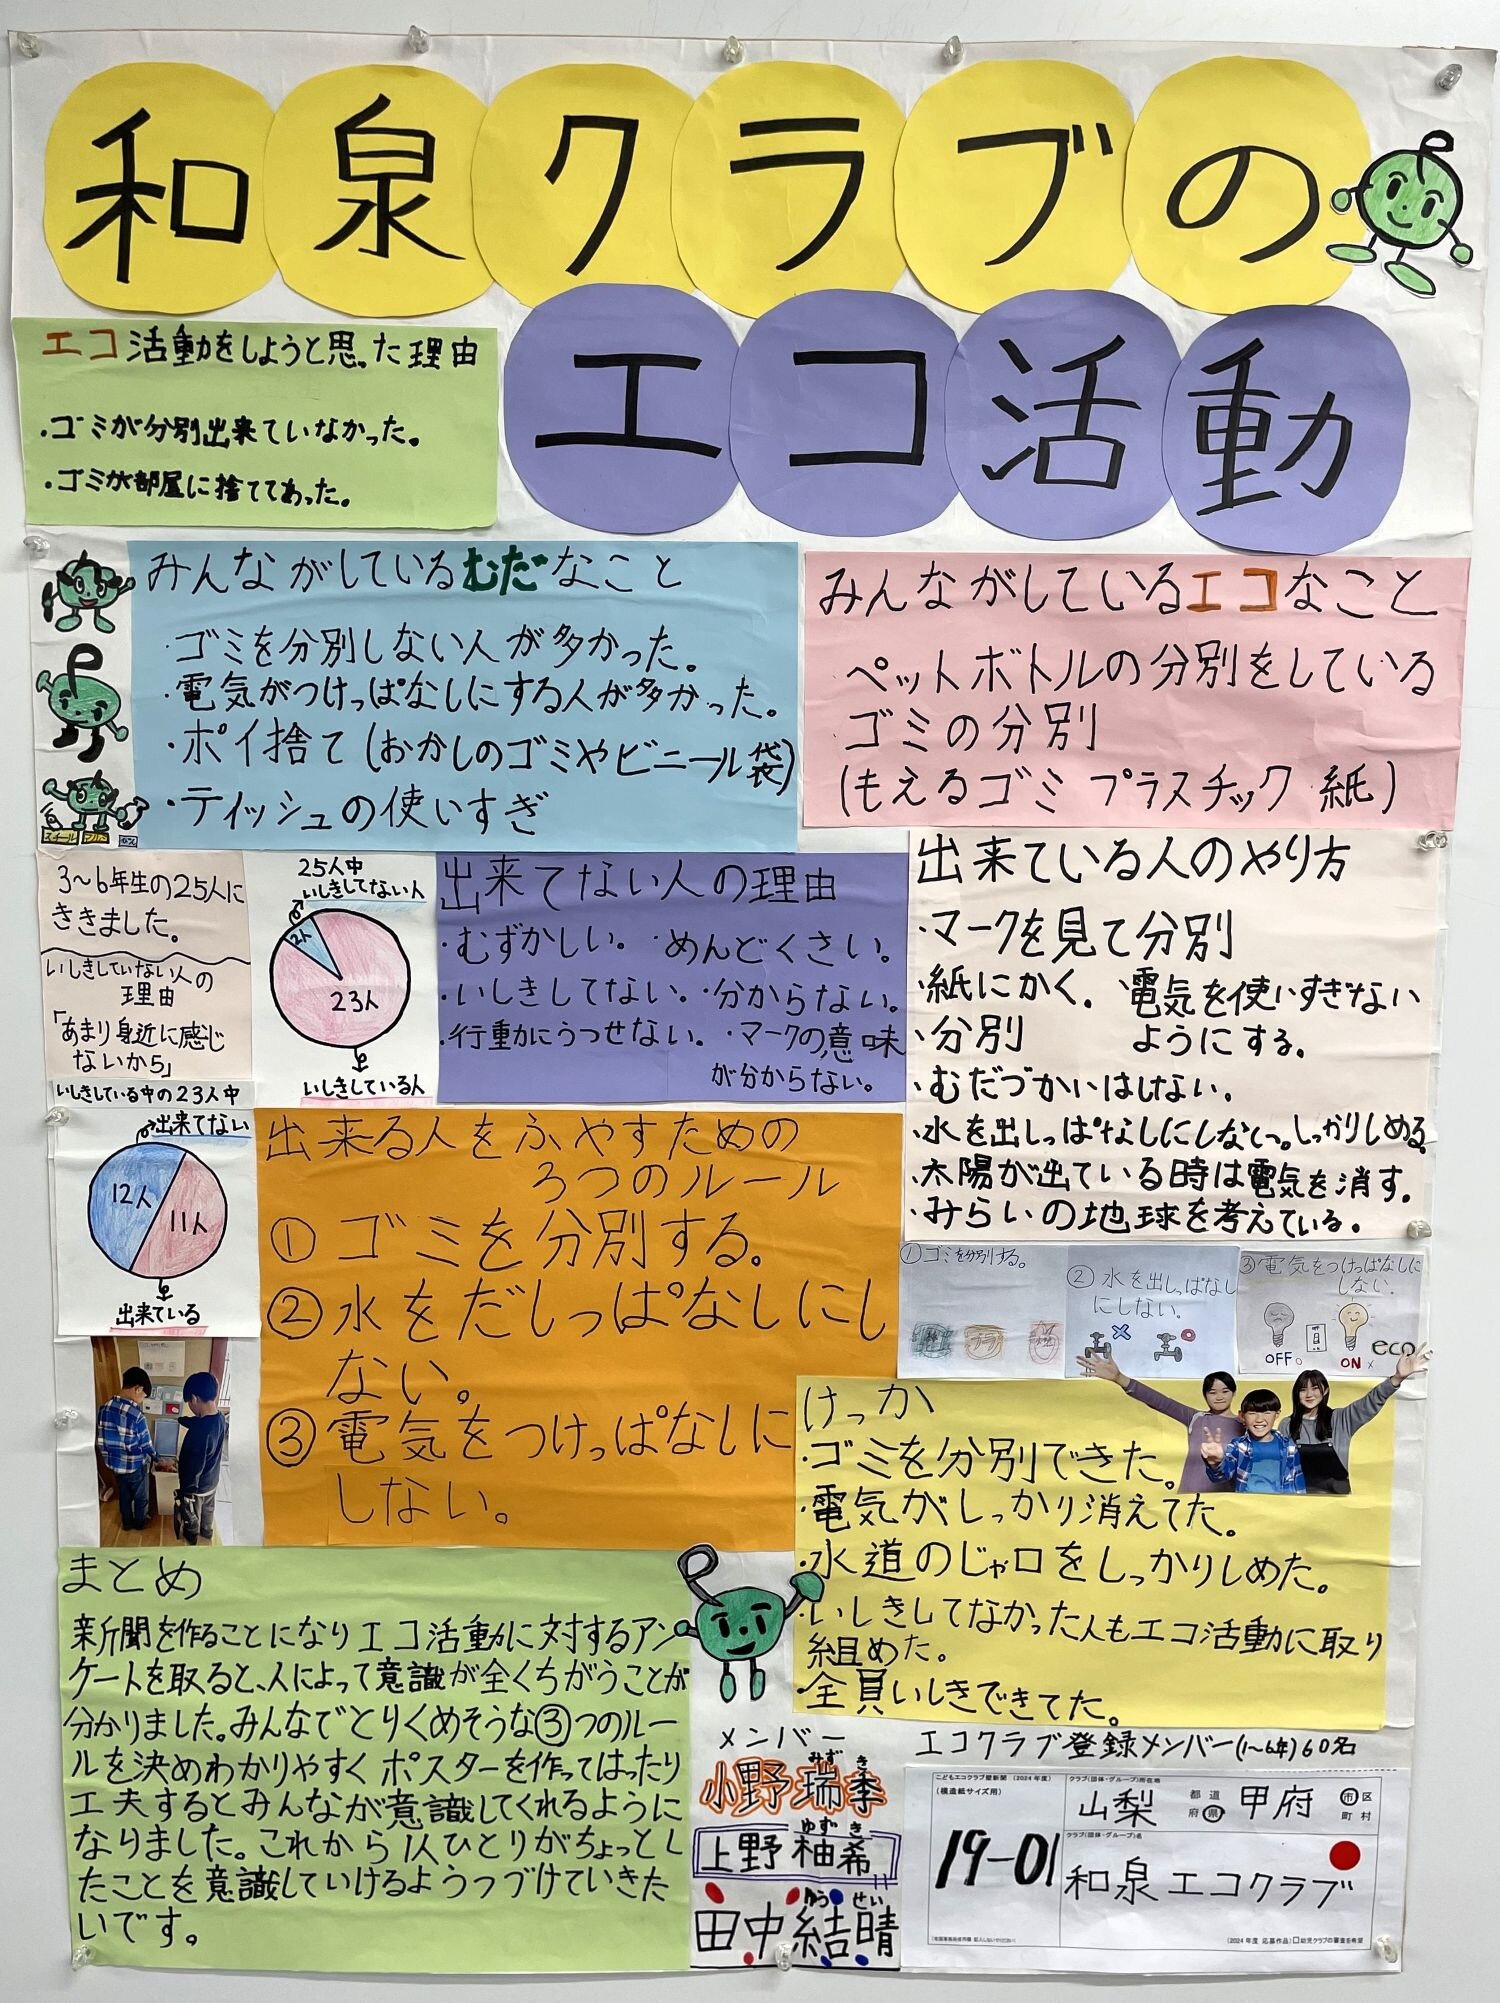 和泉クラブの
エコ活動
エコ活動をしようと思った理由
・ゴミが分別出来ていなかった。
・ゴミが部屋に捨ててあった。
みんながしているむだなこと
・ゴミを分別しない人が多かった。
・電気がつけっぱなしにする人が多かった。
・ポイ捨て(おかしのゴミやビニール袋)
・ティッシュの使いすぎ
スチール アルミ
みんながしているエコなこと
ペットボトルの分別をしている
ゴミの分別
(もえるゴミ プラスチック 紙)
3〜6年生の25人に
ききました。
いしきしていない人の
理由
「あまり身近に感じ
ないから」
いしきしている中の23人中
25人中
いしきしてない人
2人
23人
いしきしている人
出来てない人の理由
・むずかしい。 ・めんどくさい。
・いしきしてない。・分からない。
・行動にうつせない。 ・マークの意味
が分からない。
出来ている人のやり方
・マークを見て分別
・紙にかく。 ・電気を使いすぎない
ようにする。
・分別
・むだづかいはしない。
・水を出しっぱなしにしない。しっかりしめる。
・太陽が出ている時は電気を消す。
・みらいの地球を考えている。
出来てない
12人
11人
出来ている
出来る人をふやすための
3つのルール
①ゴミを分別する。
②水をだしっぱなしにし
ない。
③電気をつけっぱなしに
しない。
①ゴミを分別する。
プラ
②水を出しっぱなし
にしない。
③電気をつけっぱなしに
しない。
OFF○
ON×
eco
けっか
・ゴミを分別できた。
・電気がしっかり消えてた。
・水道のじゃ口をしっかりしめた。
・いしきしてなかった人もエコ活動に取り
組めた。
・全員いしきできてた。
まとめ
新聞を作ることになりエコ活動に対するアン
ケートを取ると、人によって意識が全くちがうことが
分かりました。みんなでとりくめそうな③つのルー
ルを決めわかりやすくポスターを作ってはったり
工夫するとみんなが意識してくれるように
なりました。これから1人ひとりがちょっとし
たことを意識していけるようつづけていきた
いです。
メンバー
みず き
小野瑞季
ゆず き
上野柚希
ゆう せい
田中結晴
エコクラブ登録メンバー(1〜6年)60名
こどもエコクラブ壁新聞 (2024年度)
(模造紙サイズ用)
19-01
クラブ(団体・グループ)所在地
山梨 都道府県 甲府 市区町村
クラブ(団体・グループ)名
和泉エコクラブ
(2024年度 応募作品) □幼児クラブの審査を希望